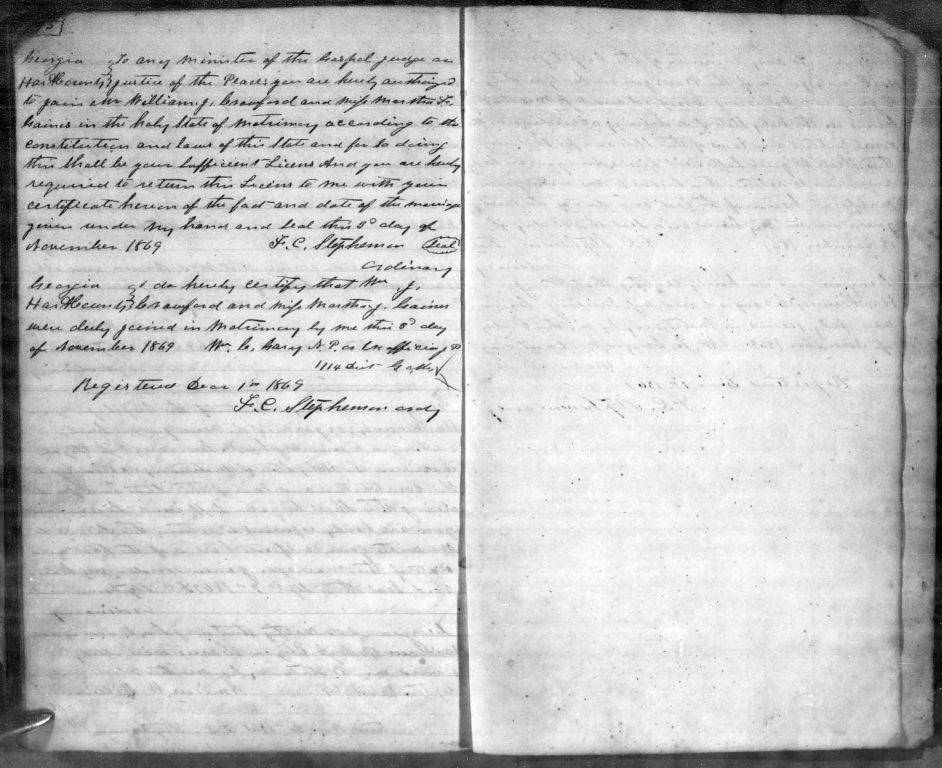 5
Georgia } To any minister of the Gospel judge or
Hart County } justice of the Peace you are hereby authorized
to join Mr William J. Crawford and Miss Martha J.
Gaines in the holy State of Matrimony according to the
constitution and laws of this State and for so doing
this shall be your sufficient Licens And you are hereby
required to return this Licens to me with your
certificate hereon of the fact and date of the marriage
given under my hand and seal this 8th day of
November 1869 F. C. Stephenson Seal
ordinary
Georgia } I do hereby certify that Wm J.
Hart County } Crawford and Miss Martha J. Gaines
were duly joined in Matrimony by me this 8th day
of November 1869 Wm C. N.P. & Ex officio J P
1114 dist G M
Registered Dear 1st 1869
F. C. Stephenson ordy